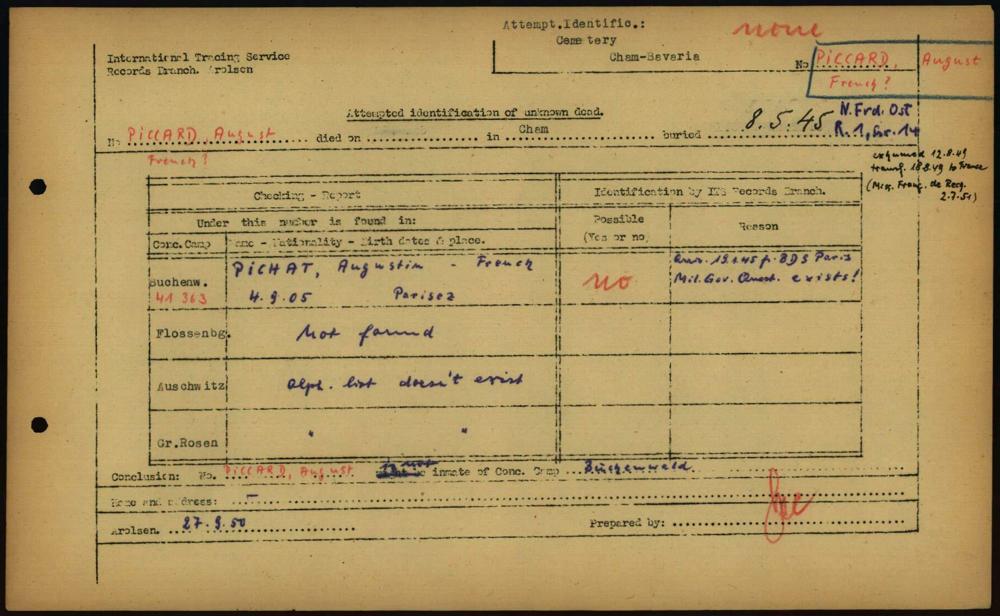 Attempt.Identific.: none
Cemetery
International Tracing Service
Records Branch. Arolsen
Cham-Bavaria
No PICCARD, August
French?
Attempted identification of unknown dead.
No PICCARD, August died on ........ in Cham ........ buried 8.5.45 N.Frd. Ost
R.1, Gr. 14
French?
exhumed 12.8.49
transf. 18.8.49 to France
(Miss. Franç. de Rech.
2.7.51)
Checking - Report
Identification by ITS Records Branch.
Under this number is found in:
Possible
(Yes or no)
Reason
Conc.Camp
Name - Nationality - Birth dates & place.
Buchenw.
41 363
PICHAT, Augustin - French
4.9.05 Parisez
no
19.1.45 f. BDS Paris
Mil. Gov. Quest. exists!
Flossenbg. Not found
Auschwitz alph. list doesn't exist
Gr.Rosen " "
Conclusion: No. PICCARD, August is not inmate of Conc. Camp Buchenwald
Name and address: -
Arolsen. 27.9.50
Prepared by: